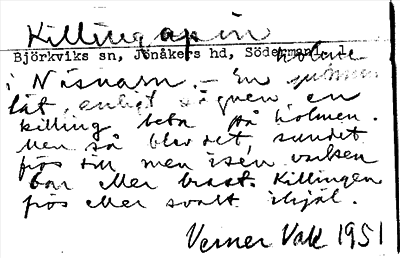 Killingapin
Björkviks sn, Jönåkers hd, Söderman l
holme
i Näsnaren. – En
låt, enligt sägnen, en
killing beta på holmen.
Men så blev det, sundet
frös till men isen varken
bar eller brast. Killingen
frös eller svalt ihjäl.
Verner Vall 1951